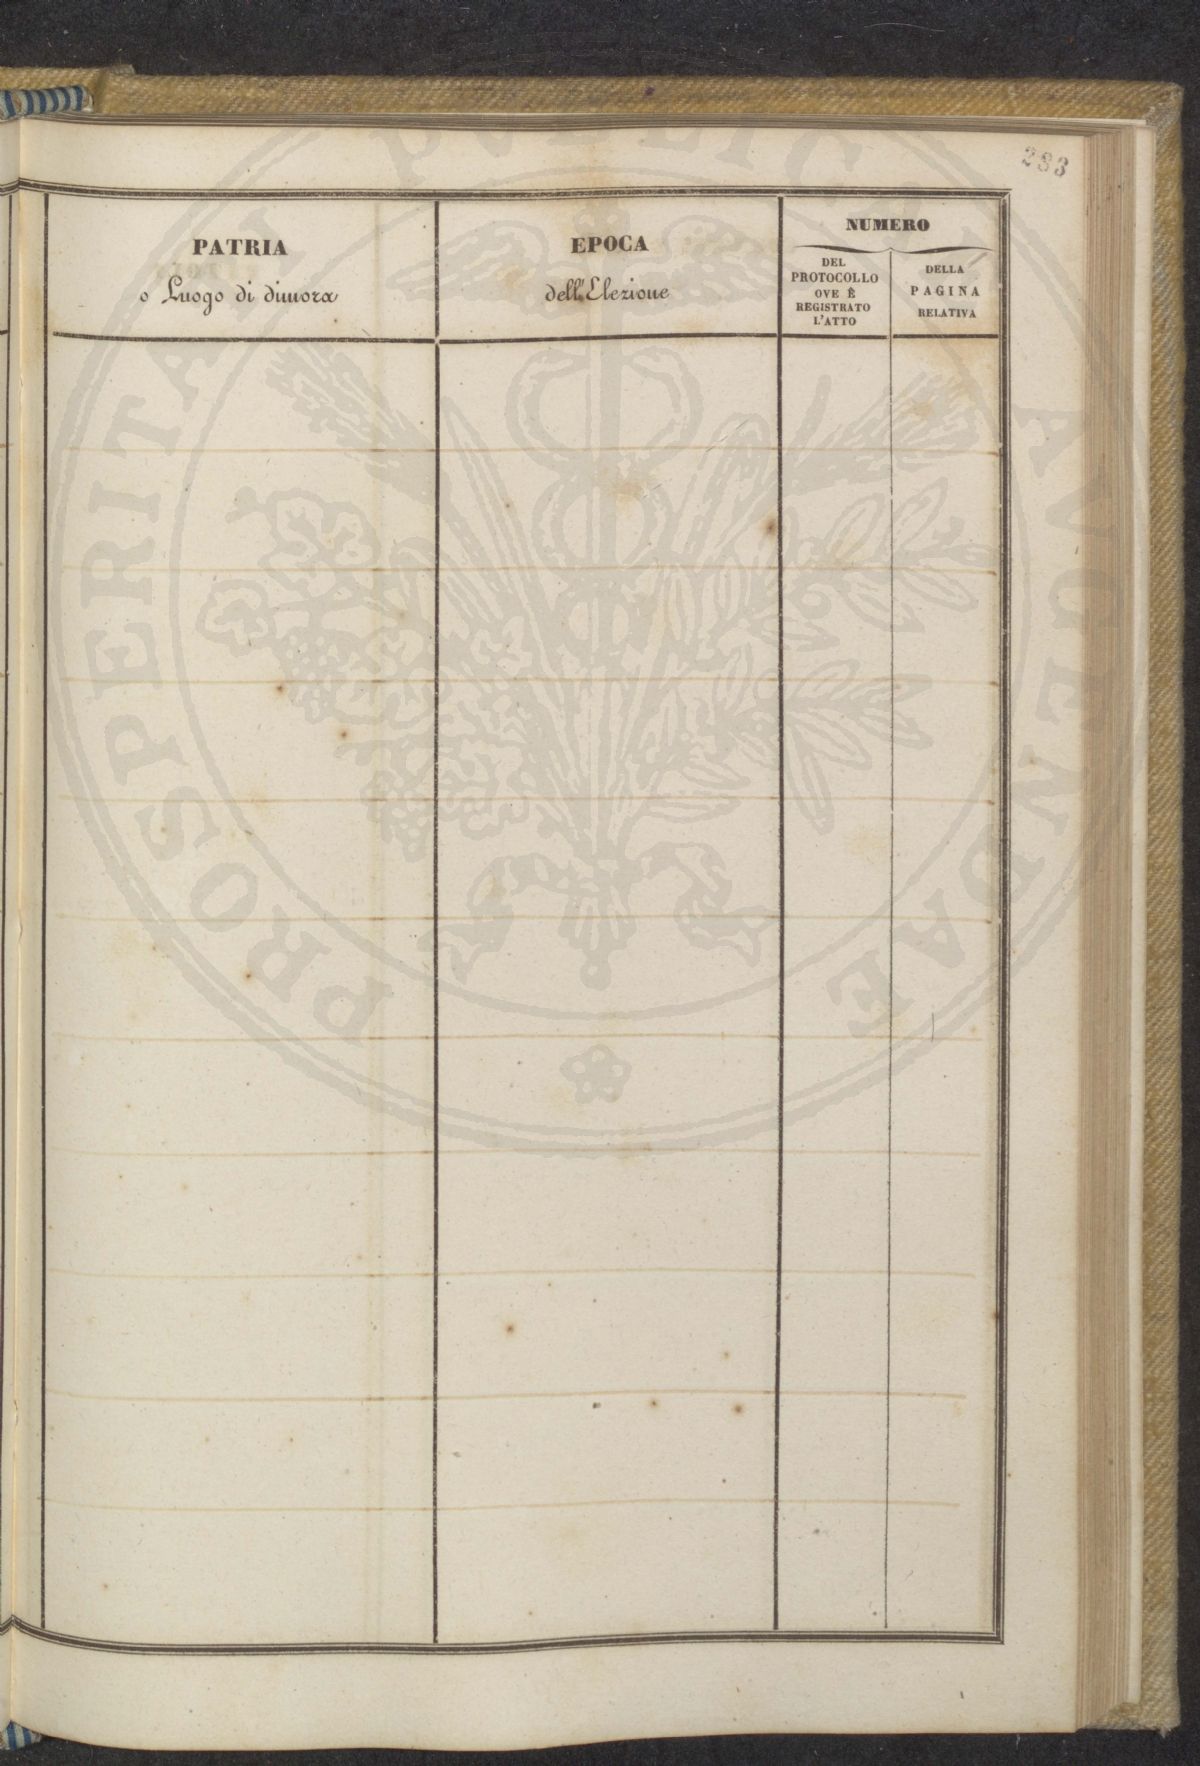 283
PATRIA
o Luogo di dimora
EPOCA
dell'Elezione
NUMERO
DEL
PROTOCOLLO
OVE È
REGISTRATO
L'ATTO
DELLA
PAGINA
RELATIVA
PROSPERITATI PUBLICAE AVGENDAE